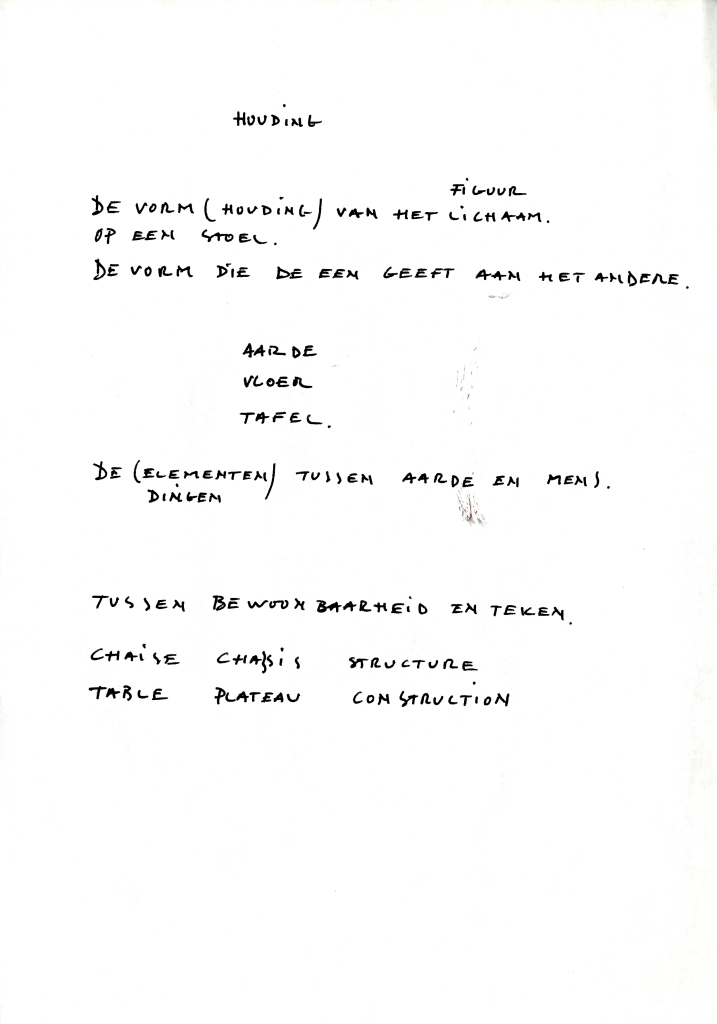 HOUDING
FIGUUR
DE VORM (HOUDING) VAN HET LICHAAM.
OP EEN STOEL.
DE VORM DIE DE EEN GEEFT AAN HET ANDERE.
AARDE
VLOER
TAFEL.
DE (ELEMENTEN) TUSSEN AARDE EN MENS.
DINGEN
TUSSEN BEWOONBAARHEID EN TEKEN.
CHAISE CHASSIS STRUCTURE
TABLE PLATEAU CONSTRUCTION